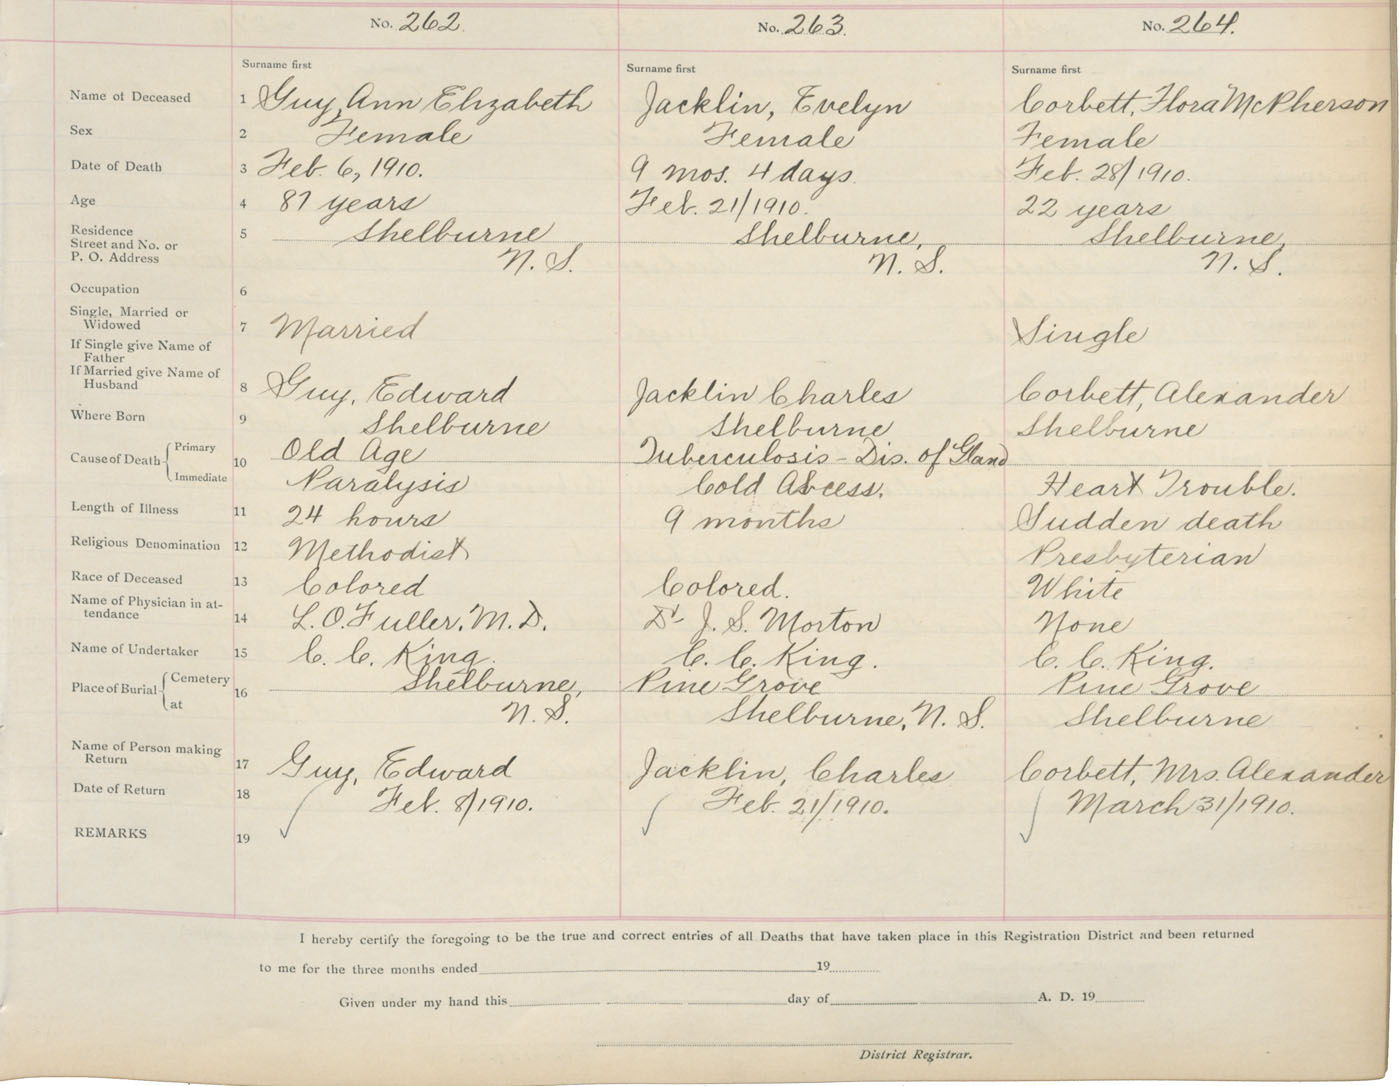 No. 262. No. 263. No. 264.
Surname first Surname first Surname first
Name of Deceased 1 Guy, Ann Elizabeth Jacklin, Evelyn Corbett, Flora McPherson
Sex 2 Female Female Female
Date of Death 3 Feb. 6, 1910. 9 mos. 4 days. Feb. 28/1910.
Age 4 87 years Feb. 21/1910. 22 years
Residence
Street and No. or
P. O. Address
5 Shelburne Shelburne, Shelburne,
N. S. N. S. N. S.
Occupation 6
Single, Married or
Widowed 7 Married Single
If Single give Name of
Father
If Married give Name of
Husband 8 Guy, Edward Jacklin Charles Corbett, Alexander
Where Born 9 Shelburne Shelburne Shelburne
Cause of Death 10
Primary Old Age Tuberculosis - Dis. of Gland
Immediate Paralysis Cold Abcess. Heart Trouble.
Length of Illness 11 24 hours 9 months Sudden death
Religious Denomination 12 Methodist Presbyterian
Race of Deceased 13 Colored Colored. White
Name of Physician in at-
tendance 14 L. O. Fuller, M. D. Dr J. S. Morton None
Name of Undertaker 15 C. C. King. C. C. King. C. C. King.
Place of Burial 16
Cemetery Shelburne, Pine Grove Pine Grove
at N. S. Shelburne, N. S. Shelburne
Name of Person making
Return 17 Guy, Edward Jacklin, Charles Corbett, Mrs. Alexander
Date of Return 18 Feb. 8/1910. Feb. 21/1910. March 31/1910.
REMARKS 19
I hereby certify the foregoing to be the true and correct entries of all Deaths that have taken place in this Registration District and been returned
to me for the three months ended 19
Given under my hand this day of A. D. 19
District Registrar.